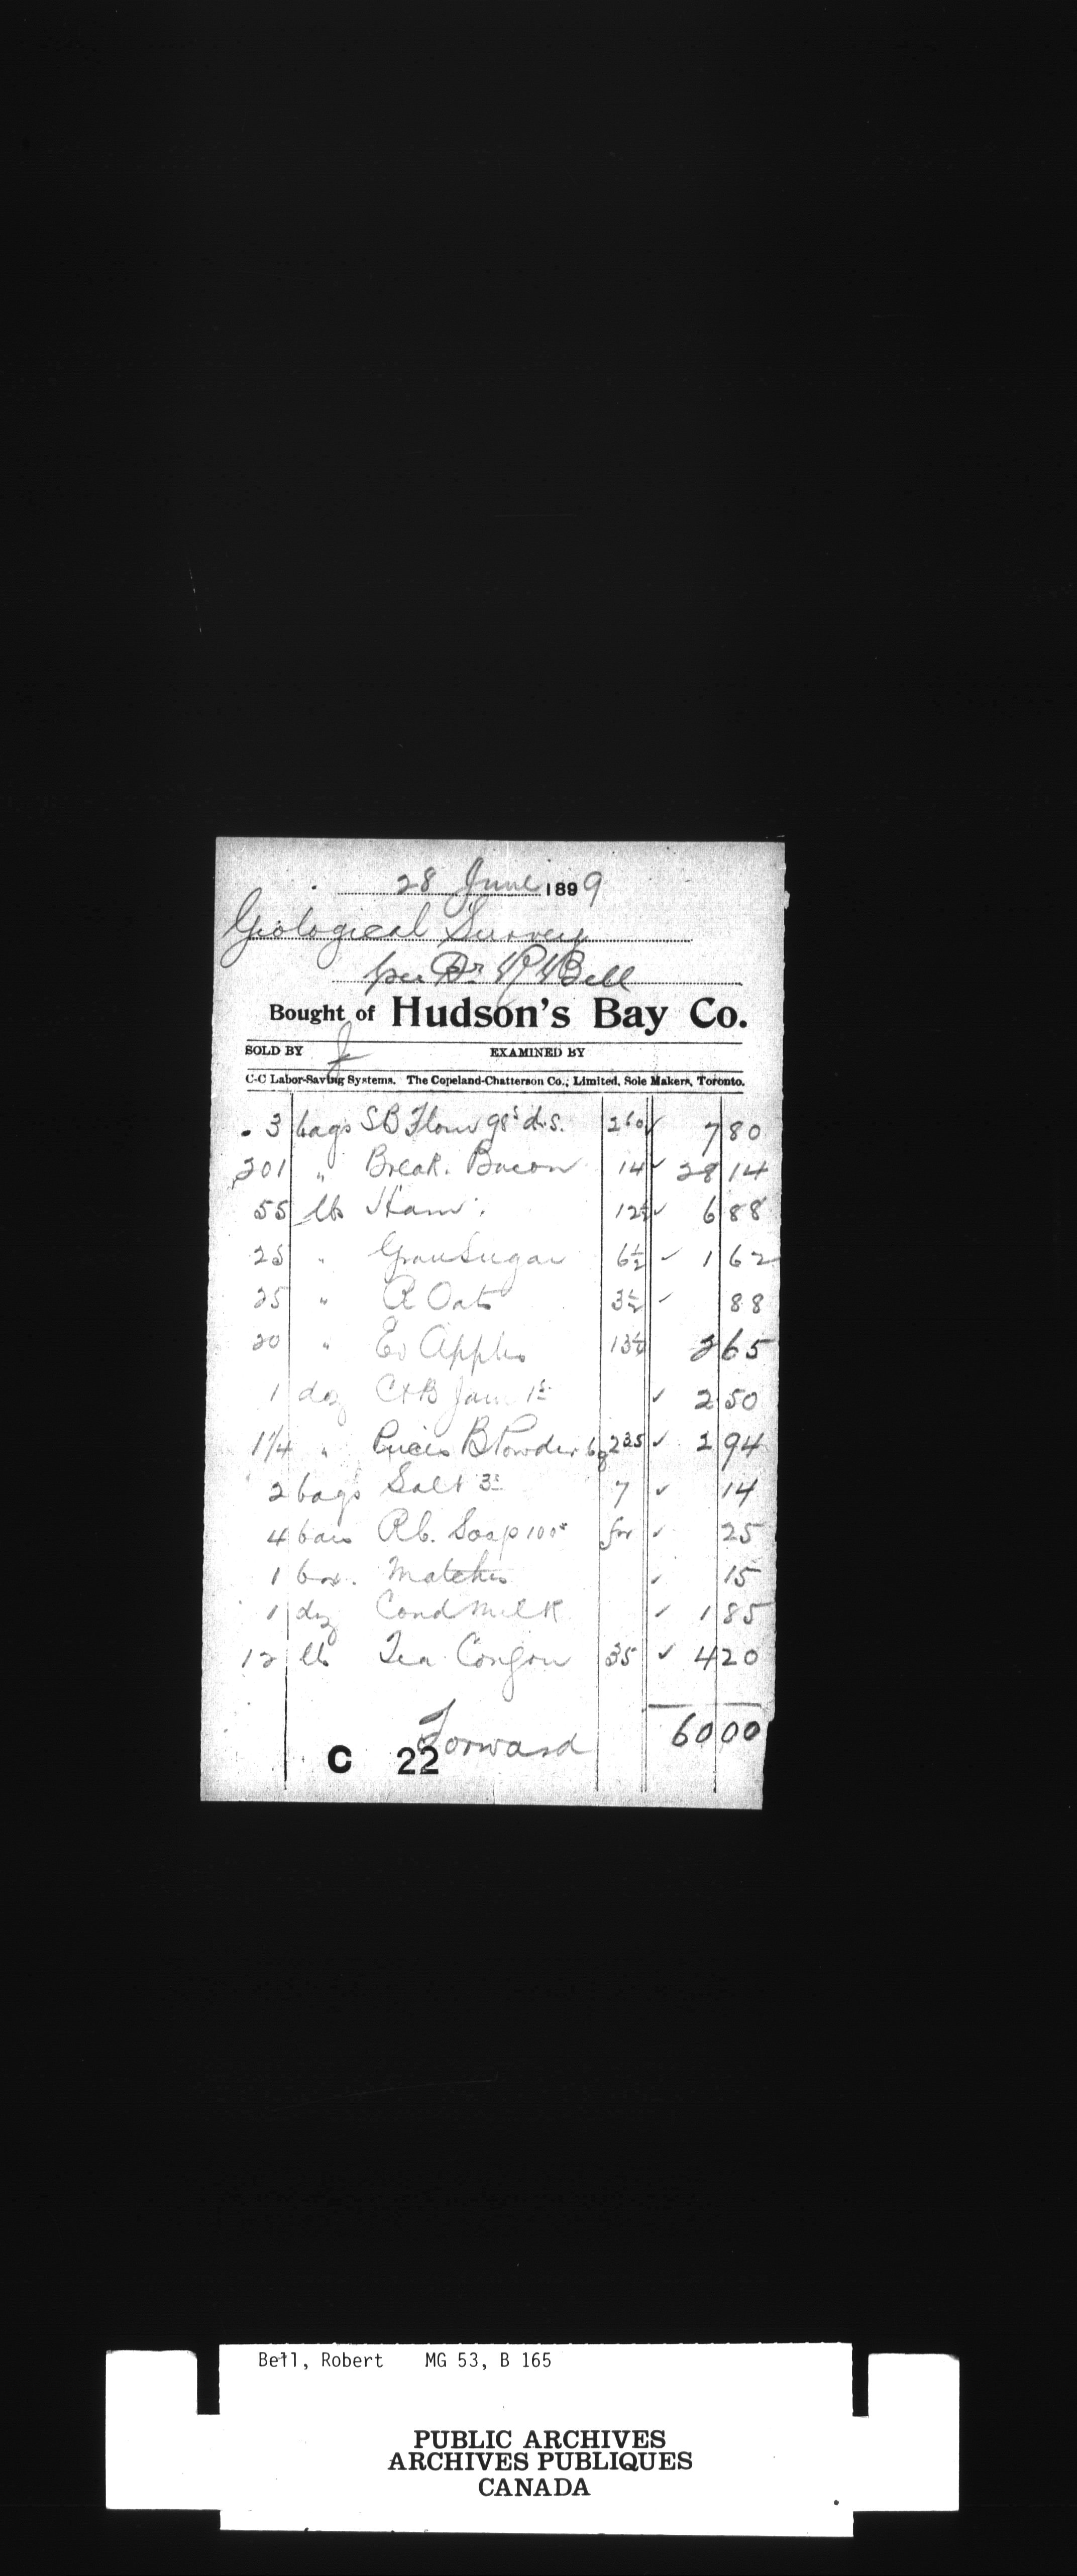 28 June 1899
Geological Survey
per Dr. R Bell
Bought of Hudson's Bay Co.
SOLD BY EXAMINED BY
C-C Labor-Saving Systems. The Copeland-Chatterson Co., Limited, Sole Makers, Toronto.
3 bags SB Flour 98s d.s. 260 ✓ 7 80
201 " Break. Bacon 14 ✓ 28 14
55 lb Ham 12½ ✓ 6 88
25 " Gran Sugar 6½ ✓ 1 62
25 " R Oats 3½ ✓ 88
20 " Ev Apples 13¼ 2 65
1 doz C&B Jam 1s ✓ 2 50
1¼ " Prices B Powder 235 ✓ 2 94
2 bags Salt 3s 7 ✓ 14
4 bars Rb. Soap 100s for ✓ 25
1 box. Matches ✓ 15
1 doz Cond Milk ✓ 1 85
12 lb Tea Congou 35 ✓ 4 20
Forward 60 00
C 22
Bell, Robert MG 53, B 165
PUBLIC ARCHIVES
ARCHIVES PUBLIQUES
CANADA